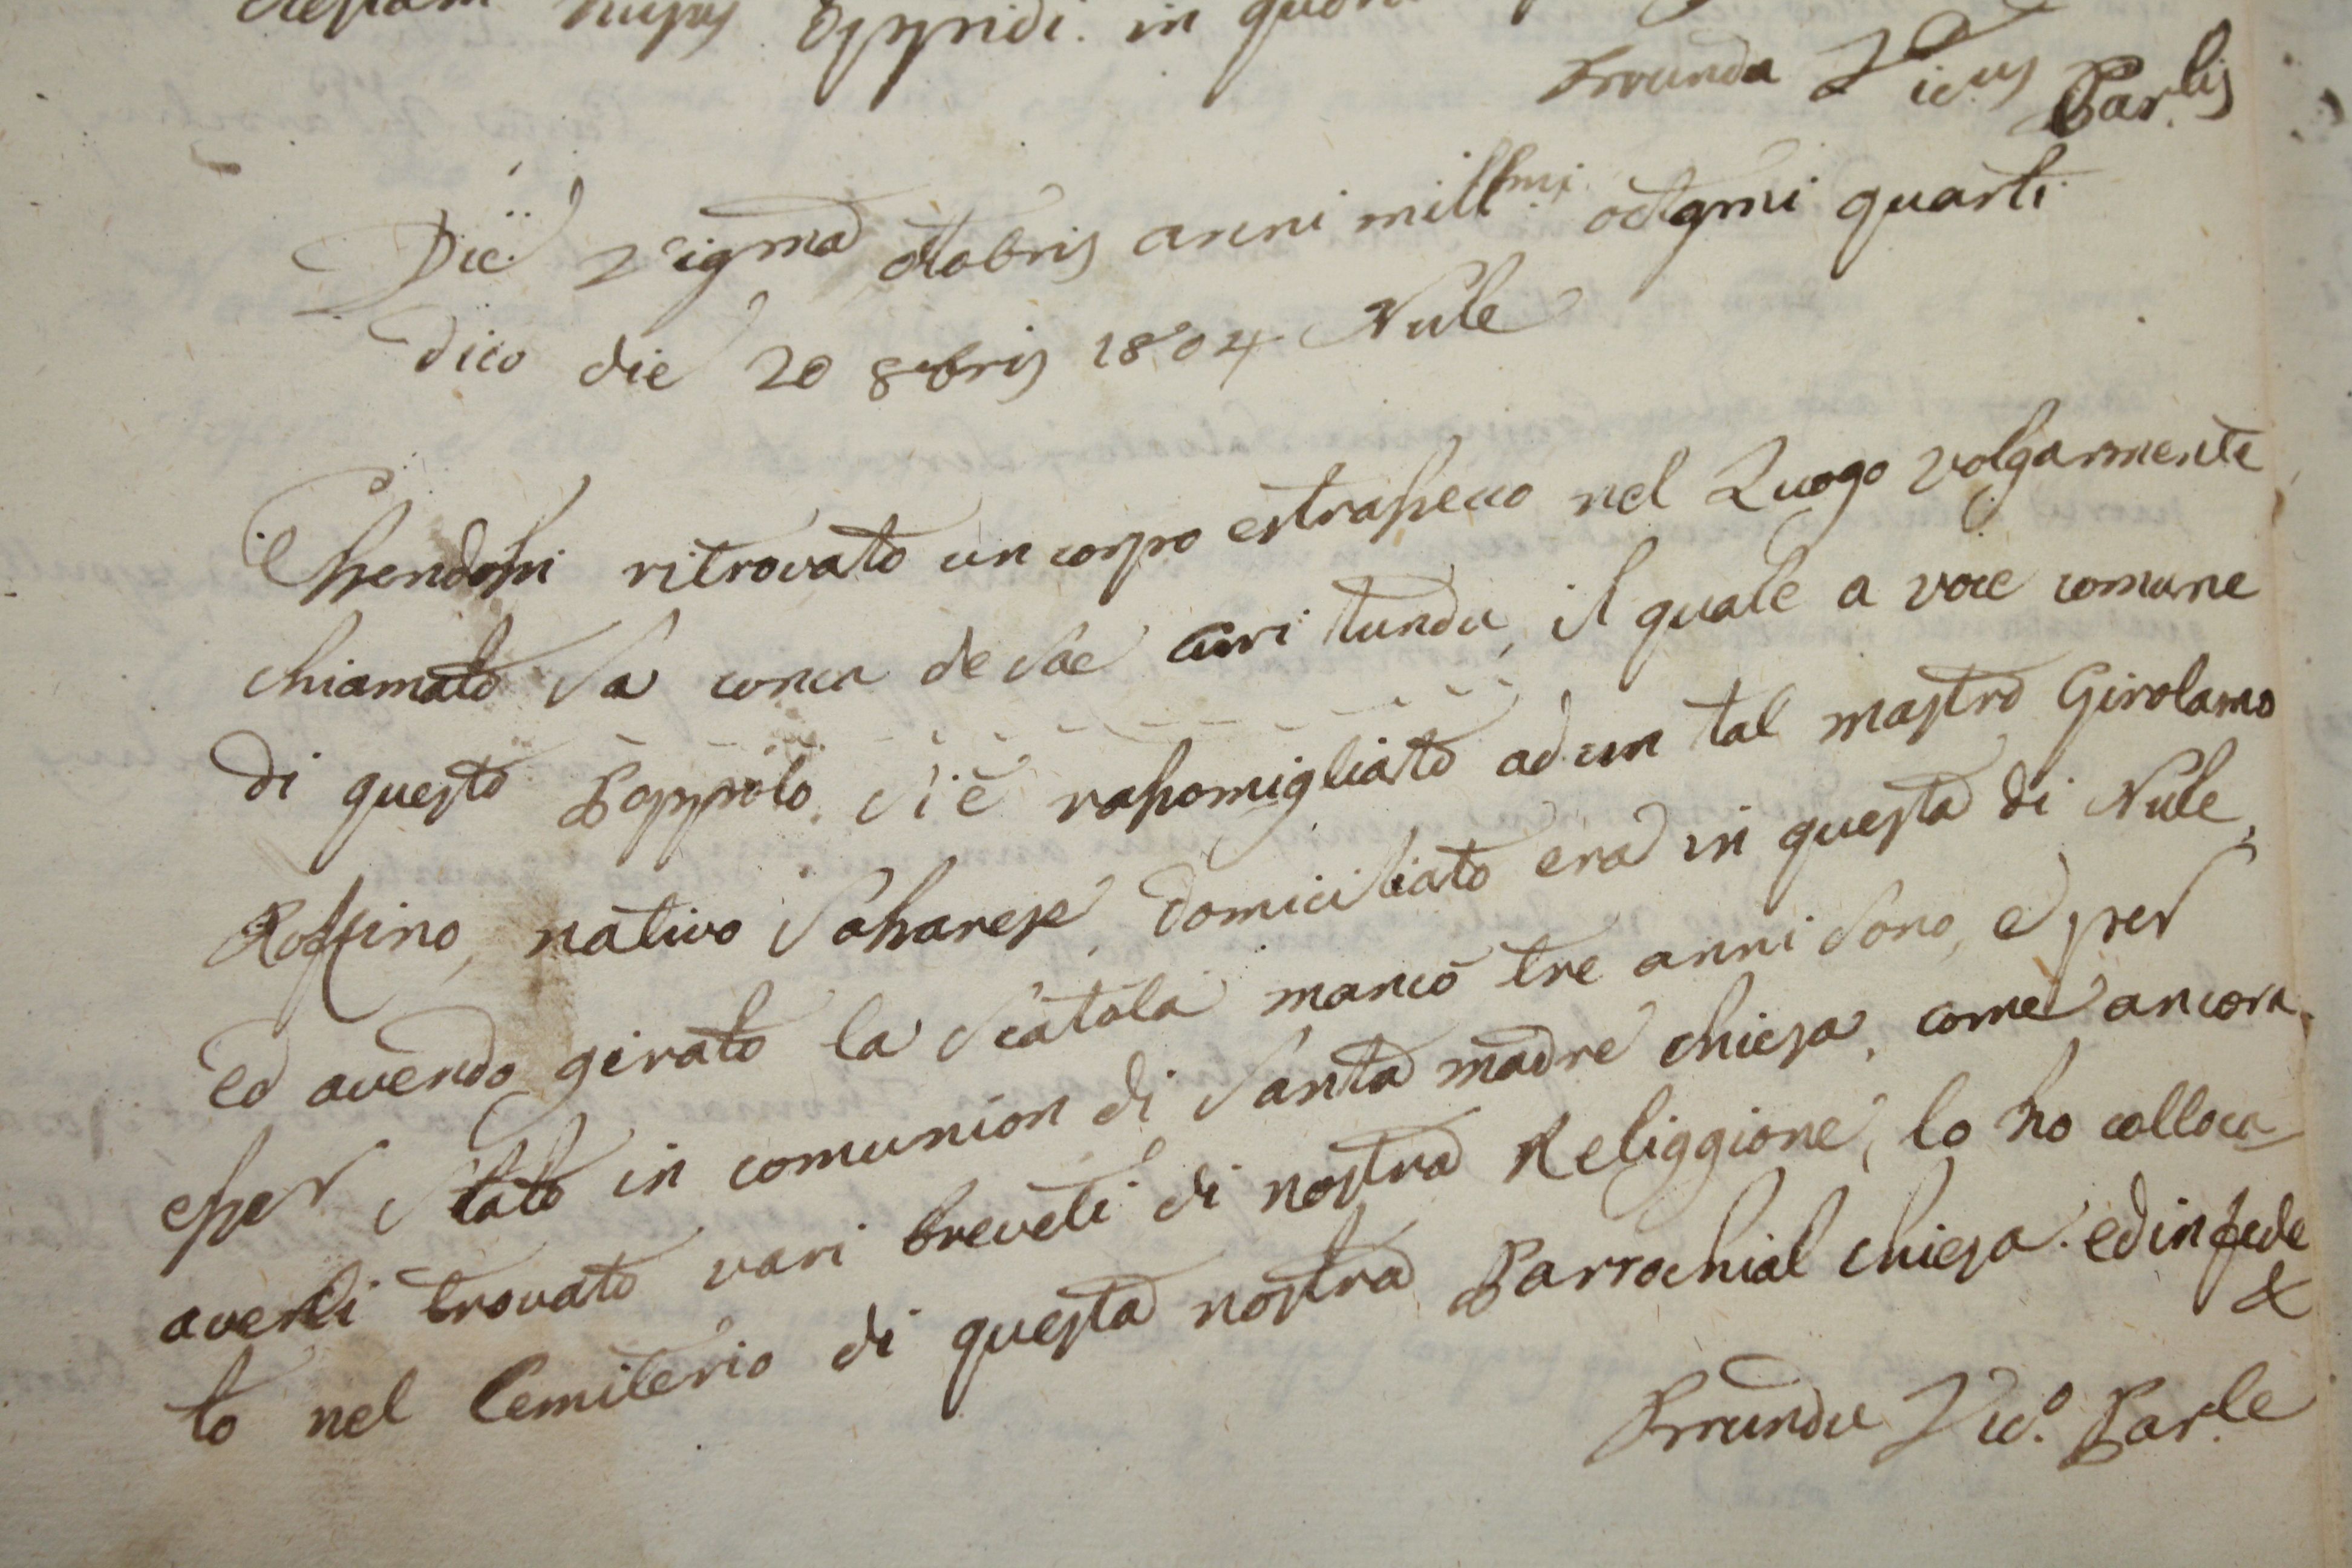 hujus Oppidi. in quorum
Virdis Parlis
Die Vigma octobris anni millmi octgmi quarti
Dico die 20 8bris 1804 Nule
Essendosi ritrovato un corpo estrasecco nel Luogo volgarmente
chiamato Sa conca de Sae curi tundu, il quale a voce comune
di questo Poppolo. Si è rassomigliato ad un tal mastro Girolamo
Roffino, nativo Sassarese domiciliato era in questa di Nule,
ed avendo girato la Scatola mancò tre anni Sono, e per
esser Stato in comunion di Santa madre chiesa, come ancora
averli trovato vari breveti di nostra Religgione, lo ho colloca
to nel Cemiterio di questa nostra Parrochial chiesa. ed in fede
&
Vic.o Par.le